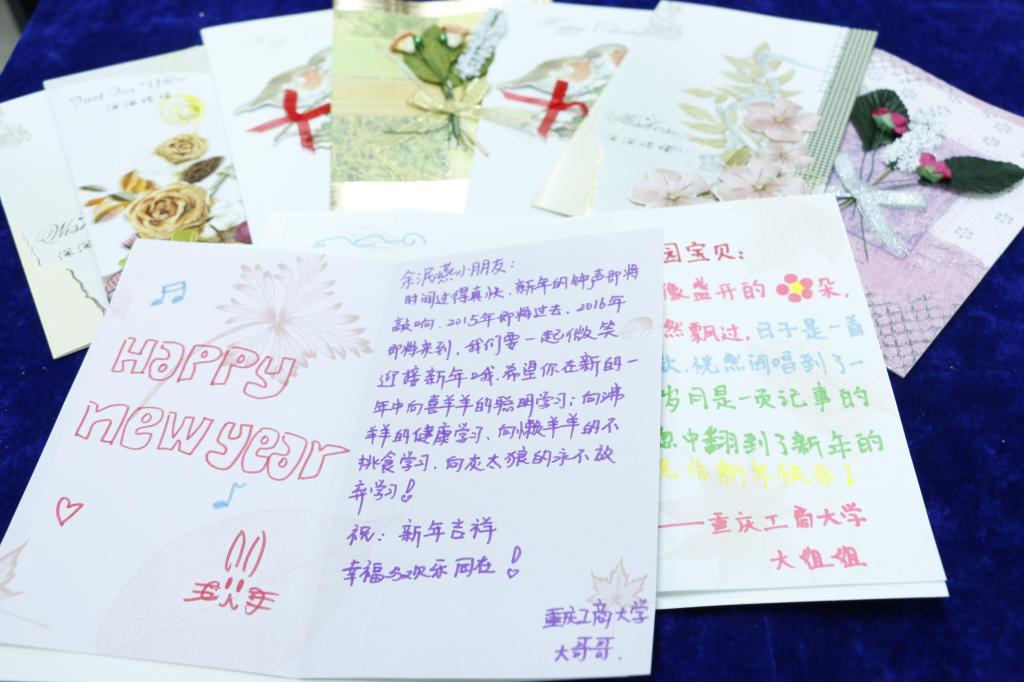 Just For You
深深祝福
Happy
new year
余泯燕小朋友：
时间过得真快，新年的钟声即将
敲响，2015年即将过去，2016年
即将来到，我们要一起微笑
迎接新年哦，希望你在新的一
年中向喜羊羊的聪明学习；向沸
羊羊的健康学习、向懒羊羊的不
挑食学习，向灰太狼的永不放
弃学习！
祝：新年吉祥
幸福与欢乐同在！
重庆工商大学
大哥哥．
园宝贝：
像盛开的 朵，
然飘过，日子是一首
歌，恍然间唱到了一
岁月是一页记事的
中翻到了新年的
祝你新年快乐！
——重庆工商大学
大姐姐